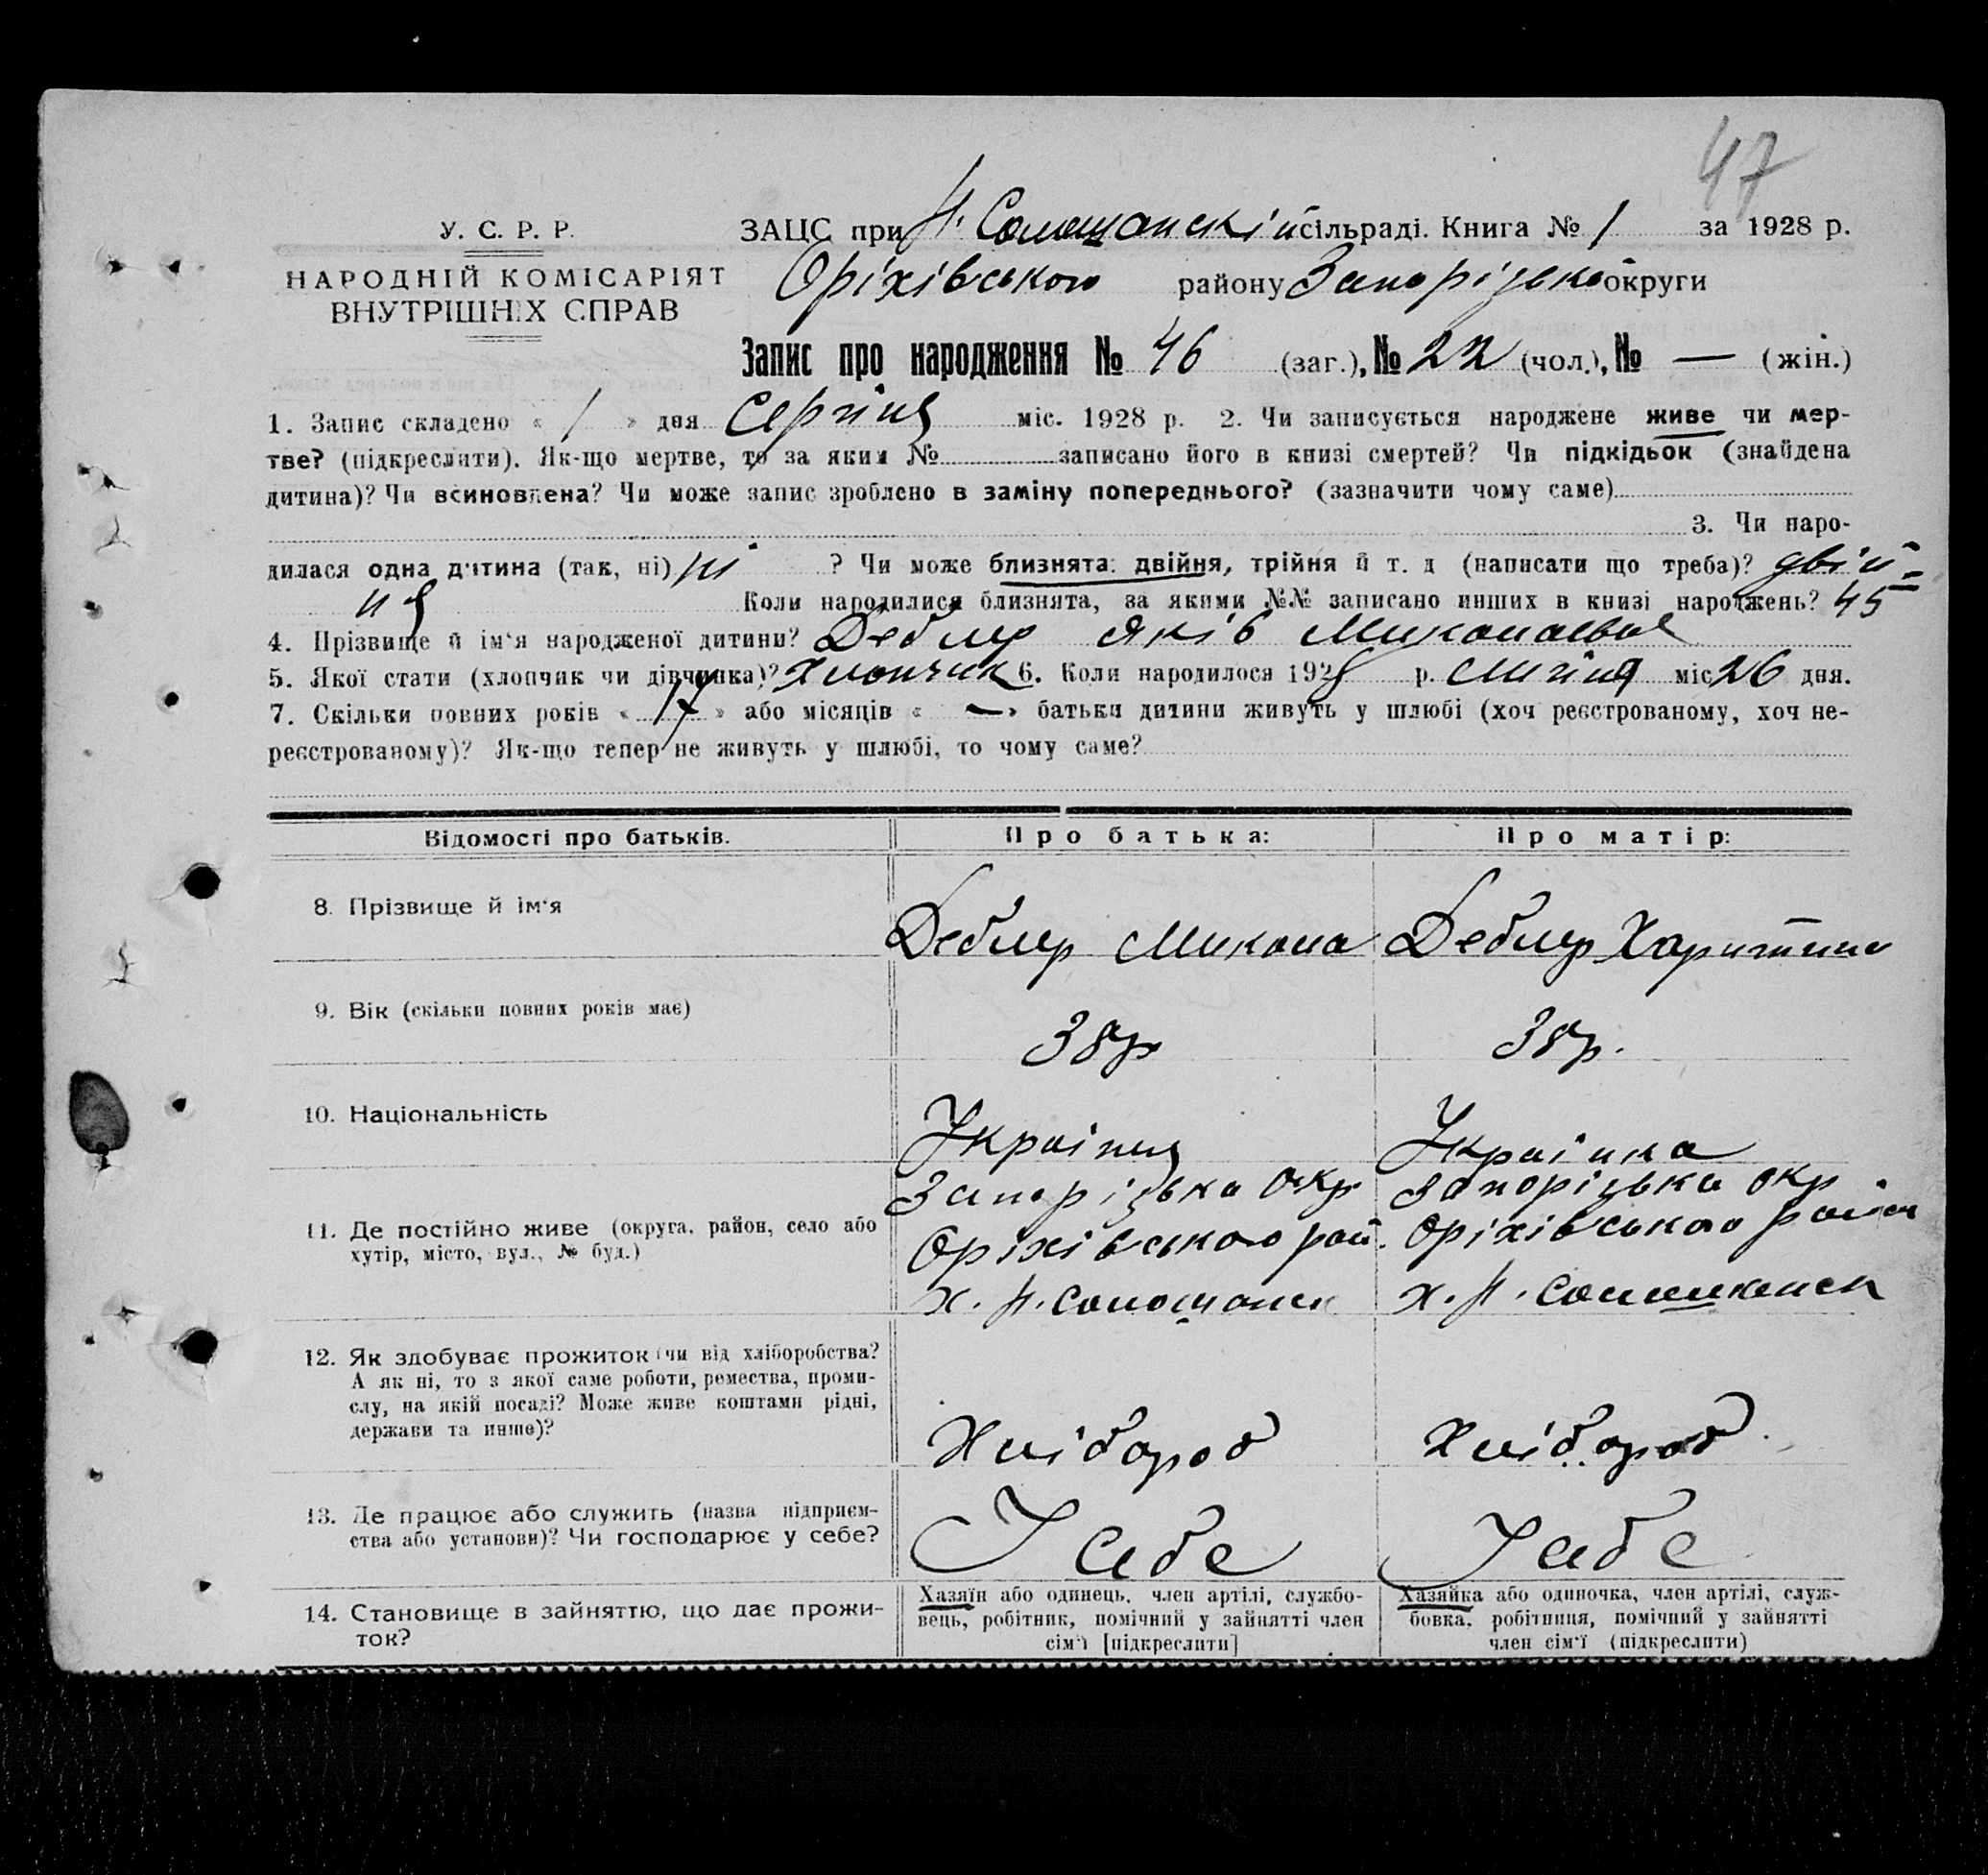 47
У. С. Р. Р.
НАРОДНІЙ КОМІСАРІЯТ
ВНУТРІШНІХ СПРАВ
ЗАЦС при Н. Солошанскій сільраді. Книга № 1 за 1928 р.
Оріхівського району Запорізько округи
Запис про народження № 46 (заг.), № 22 (чол.), № — (жін.)
1. Запис складено « 1 » дня Серпня міс. 1928 р. 2. Чи записується народжене живе чи мер-
тве? (підкреслити). Як-що мертве, то за яким № записано його в книзі смертей? Чи підкідьок (знайдена
дитина)? Чи всиновлена? Чи може запис зроблено в заміну попереднього? (зазначити чому саме)
3. Чи наро-
дилася одна дитина (так, ні) ні ? Чи може близнята: двійня, трійня й т. д (написати що треба)? двій-
ня Коли народилися близнята, за якими №№ записано инших в книзі народжень? 45
4. Прізвище й ім'я народженої дитини? Деблер Яків Миколаєвич
5. Якої стати (хлопчик чи дівчинка)? Хлопчик 6. Коли народилося 1928 р. Липня міс 26 дня.
7. Скільки повних років « 17 » або місяців « — » батьки дитини живуть у шлюбі (хоч реєстрованому, хоч не-
реєстрованому)? Як-що тепер не живуть у шлюбі, то чому саме?
Відомості про батьків. Про батька: Про матір:
8. Прізвище й ім'я Деблер Микола Деблер Харитина
9. Вік (скільки повних років має) 38р 38р.
10. Національність Украінец Украінка
11. Де постійно живе (округа, район, село або
хутір, місто, вул., № буд.)
Запорізька окр Запорізька окр
Оріхівського рай. Оріхівського район
х. Н. Солошанск х. Н.
12. Як здобуває прожиток (чи від хліборобства?
А як ні, то з якої саме роботи, ремества, проми-
слу, на якій посаді? Може живе коштами рідні,
держави та инше)?
Хлібороб Хлібороб
13. Де працює або служить (назва підприєм-
ства або установи)? Чи господарює у себе?
У себе У себе
14. Становище в зайняттю, що дає прожи-
ток?
Хазяїн або одинець, член артілі, службо-
вець, робітник, помічний у зайнятті член
сім'ї [підкреслити]
Хазяйка або одиночка, член артілі, служ-
бовка, робітниця, помічний у зайнятті
член сім'ї (підкреслити)